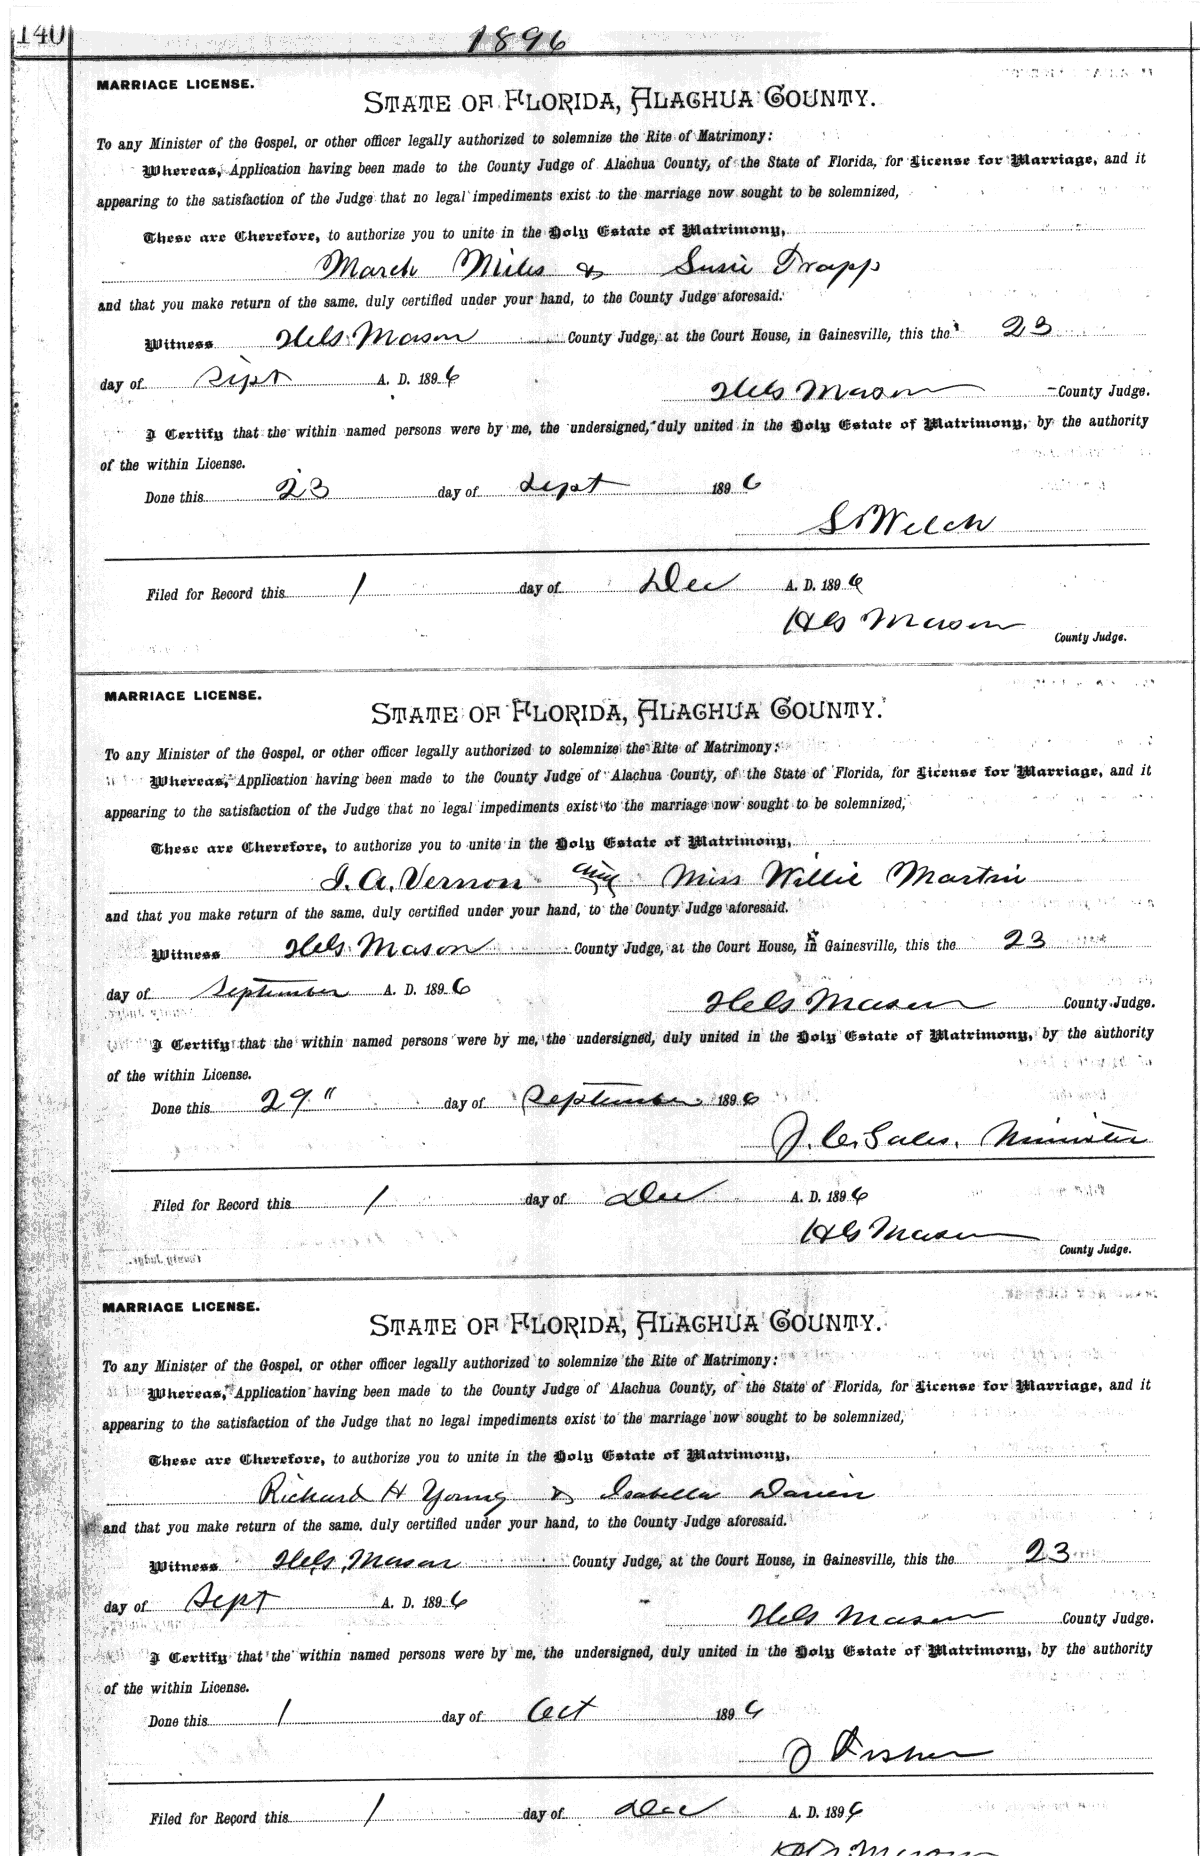 140
1896
MARRIAGE LICENSE.
STATE OF FLORIDA, ALACHUA COUNTY.
To any Minister of the Gospel, or other officer legally authorized to solemnize the Rite of Matrimony:
Whereas, Application having been made to the County Judge of Alachua County, of the State of Florida, for License for Marriage, and it
appearing to the satisfaction of the Judge that no legal impediments exist to the marriage now sought to be solemnized,
These are Therefore, to authorize you to unite in the Holy Estate of Matrimony,
March Miles & Susie Trapp
and that you make return of the same, duly certified under your hand, to the County Judge aforesaid.
Witness Mason County Judge, at the Court House, in Gainesville, this the 23
day of Sept A. D. 1896
Mason County Judge.
I Certify that the within named persons were by me, the undersigned, duly united in the Holy Estate of Matrimony, by the authority
of the within License.
Done this 23 day of Sept 1896
S Welch
Filed for Record this 1 day of Dec A. D. 1896
Mason
County Judge.
MARRIAGE LICENSE.
STATE OF FLORIDA, ALACHUA COUNTY.
To any Minister of the Gospel, or other officer legally authorized to solemnize the Rite of Matrimony:
Whereas, Application having been made to the County Judge of Alachua County, of the State of Florida, for License for Marriage, and it
appearing to the satisfaction of the Judge that no legal impediments exist to the marriage now sought to be solemnized,
These are Therefore, to authorize you to unite in the Holy Estate of Matrimony,
J. A. Vernon and Miss Willie Martin
and that you make return of the same, duly certified under your hand, to the County Judge aforesaid.
Witness Mason County Judge, at the Court House, in Gainesville, this the 23
day of September A. D. 1896
Mason County Judge.
I Certify that the within named persons were by me, the undersigned, duly united in the Holy Estate of Matrimony, by the authority
of the within License.
Done this 29" day of September 1896
J. C. Sales, Minister
Filed for Record this 1 day of Dec A. D. 1896
Mason
County Judge.
MARRIAGE LICENSE.
STATE OF FLORIDA, ALACHUA COUNTY.
To any Minister of the Gospel, or other officer legally authorized to solemnize the Rite of Matrimony:
Whereas, Application having been made to the County Judge of Alachua County, of the State of Florida, for License for Marriage, and it
appearing to the satisfaction of the Judge that no legal impediments exist to the marriage now sought to be solemnized,
These are Therefore, to authorize you to unite in the Holy Estate of Matrimony,
Richard H Young & Isabella Darien
and that you make return of the same, duly certified under your hand, to the County Judge aforesaid.
Witness Mason County Judge, at the Court House, in Gainesville, this the 23
day of Sept A. D. 1896
Mason County Judge.
I Certify that the within named persons were by me, the undersigned, duly united in the Holy Estate of Matrimony, by the authority
of the within License.
Done this 1 day of Oct 1896
J Fisher
Filed for Record this 1 day of Dec A. D. 1896